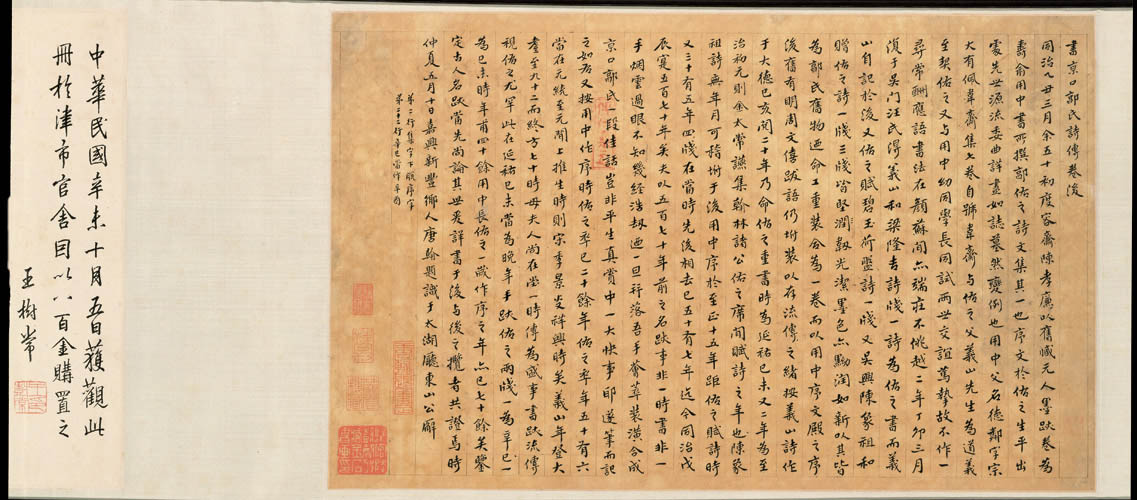 書京口郭氏詩傳卷後
同治乙丑三月余五十初度容齋陳孝廉以舊臧元人墨跡卷為
壽俞用中書所撰郭佑之詩文集其一也序文於佑之生平出
處先世源流委曲詳盡如誌墓然變例也用中父名德鄰字宗
大有佩韋齋集七卷自號韋齋與佑之父義山先生為道義
至契佑之又與用中幼同學長同試兩世交誼篤摯故不作一
尋常酬應語書法在顏蘇間亦端莊不佻越二年丁卯三月
復于吳門汪氏得義山和梁隆吉詩牋一詩為佑之書而義
山自記於後又佑之賦碧玉荷盤詩一牋又吳興陳象祖和
贈佑之詩一牋三牋皆堅潤韌光潔墨色亦黝潤如新以其皆
為郭氏舊物迺命工重裝合為一卷而以用中序文殿之序
後舊有明周文僖跋語仍坿裝以存流傳之緒按義山詩作
于大德己亥閱二十年乃命佑之重書時為延祐己未又二年為至
治初元則金太常讌集翰林諸公佑之席間賦詩之年也陳象
祖詩無年月可稽坿于後用中序於至正十五年距佑之賦詩時
又三十有五年四牋在當時先後相去已五十有七年迄今同治戊
辰寔五百七十年矣夫以五百七十年前之名跡事非一時書非一
手烟雲過眼不知幾經浩劫迺一旦并落吾手薈萃裝潢合成
京口郭氏一段佳話豈非平生真賞中一大快事耶遂筆而記
之如右又按用中作序時佑之卒已二十餘年佑之卒年五十有六
當在元統至元間上推生時則宋季景炎祥興時矣義山年登大
耋至九十二而終方七十時母夫人尚在堂一時傳為盛事書跡流傳
視佑之尤罕此在延祐己未當為晚年手跡佑之兩牋一為辛巳一
為己未時年甫四十餘用中長佑之一歲作序之年亦已七十餘矣鑒
定古人名跡當先尚論其世爰詳書于後與後之攬者共證焉時
仲夏五月十日嘉興新豐鄉人唐翰題識于太湖廳東山公廨
第二行集字下脫序字
第二十三行辛巳當作辛酉
中華民國辛未十月五日獲觀此
冊於津市官舍因以八百金購置之
王樹常